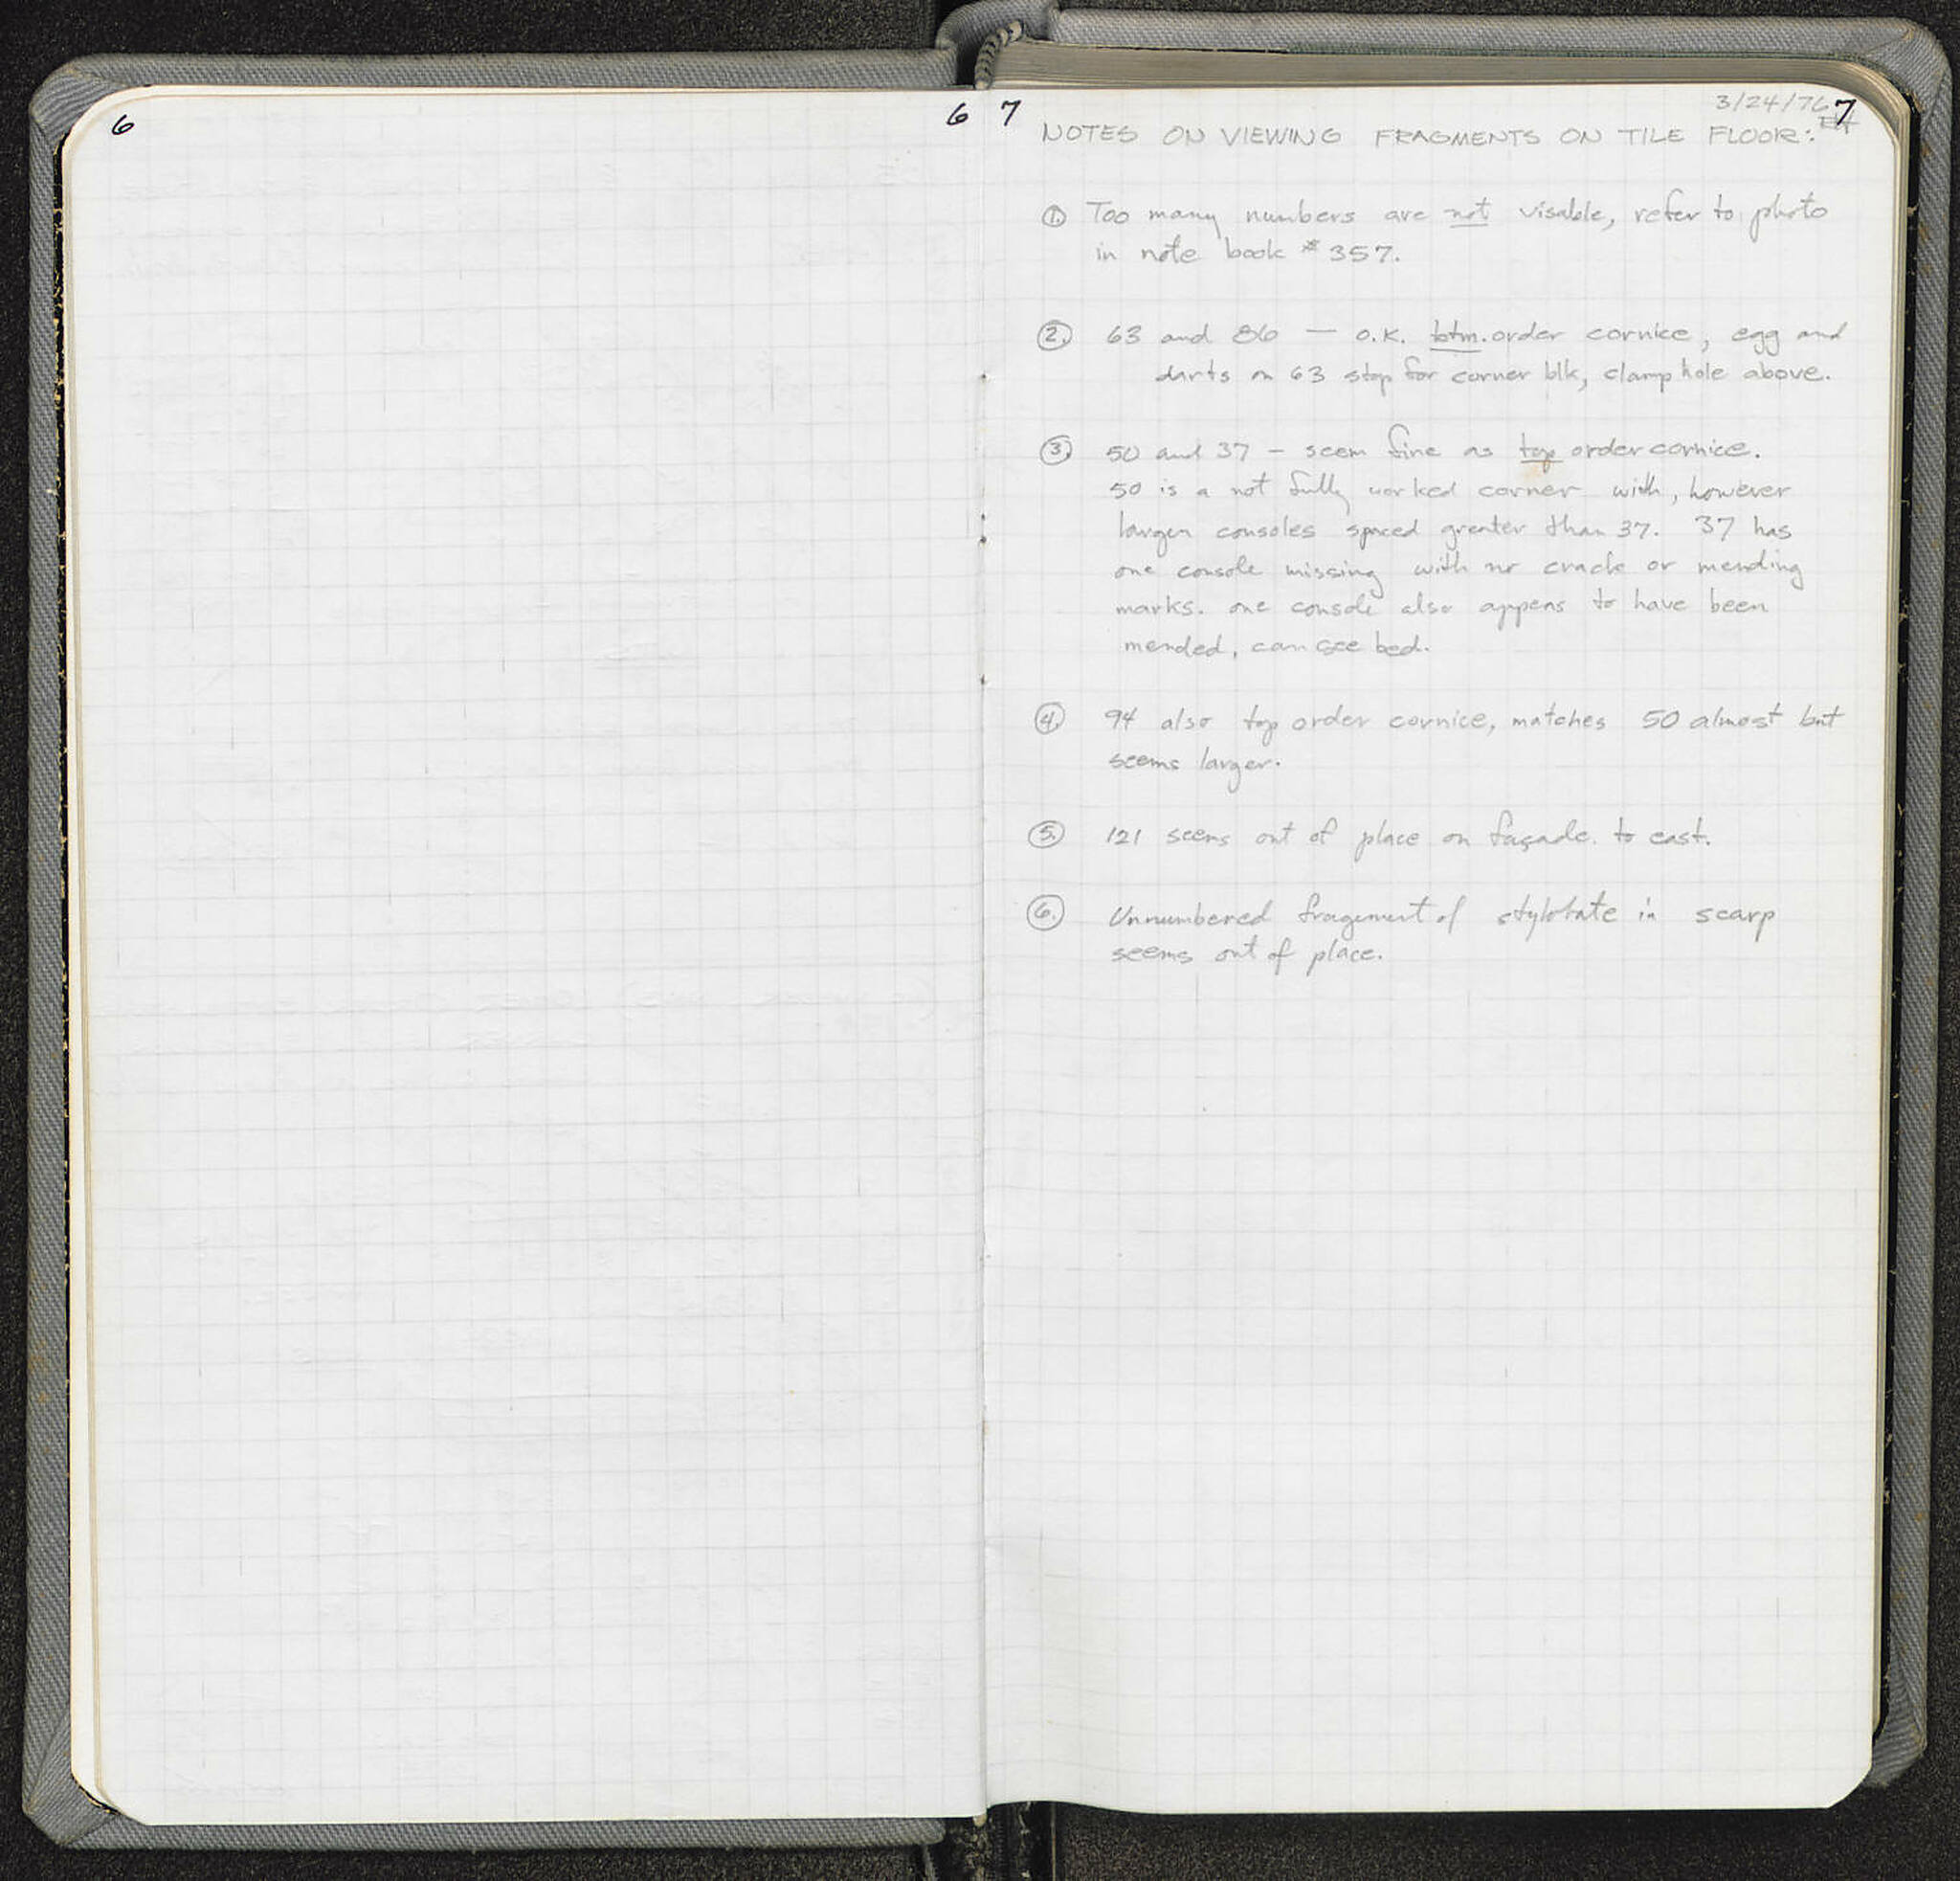 6 6 7 3/24/76 7
NOTES ON VIEWING FRAGMENTS ON TILE FLOOR:
1. Too many numbers are not visable, refer to photo
in note book #357.
2. 63 and 86 — O.K. btm. order cornice, egg and
darts on 63 stop for corner blk, clamp hole above.
3. 50 and 37 - seem fine as top order cornice.
50 is a not fully worked corner with, however
larger consoles spaced greater than 37. 37 has
one console missing with no crack or mending
marks. one console also appens to have been
mended, can see bed.
4. 94 also top order cornice, matches 50 almost but
seems larger.
5. 121 seems out of place on façade to east.
6. Unnumbered fragement of stylobate in scarp
seems out of place.